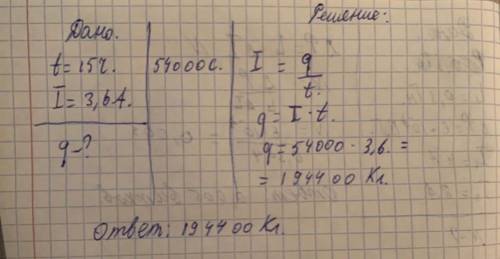 Дано.
t = 15ч.
54000 с.
I = 3,6А.
q-?
Решение:
I = q/t.
q = I · t.
q = 54000 · 3,6. =
= 194400 Кл.
Ответ: 194400 Кл.